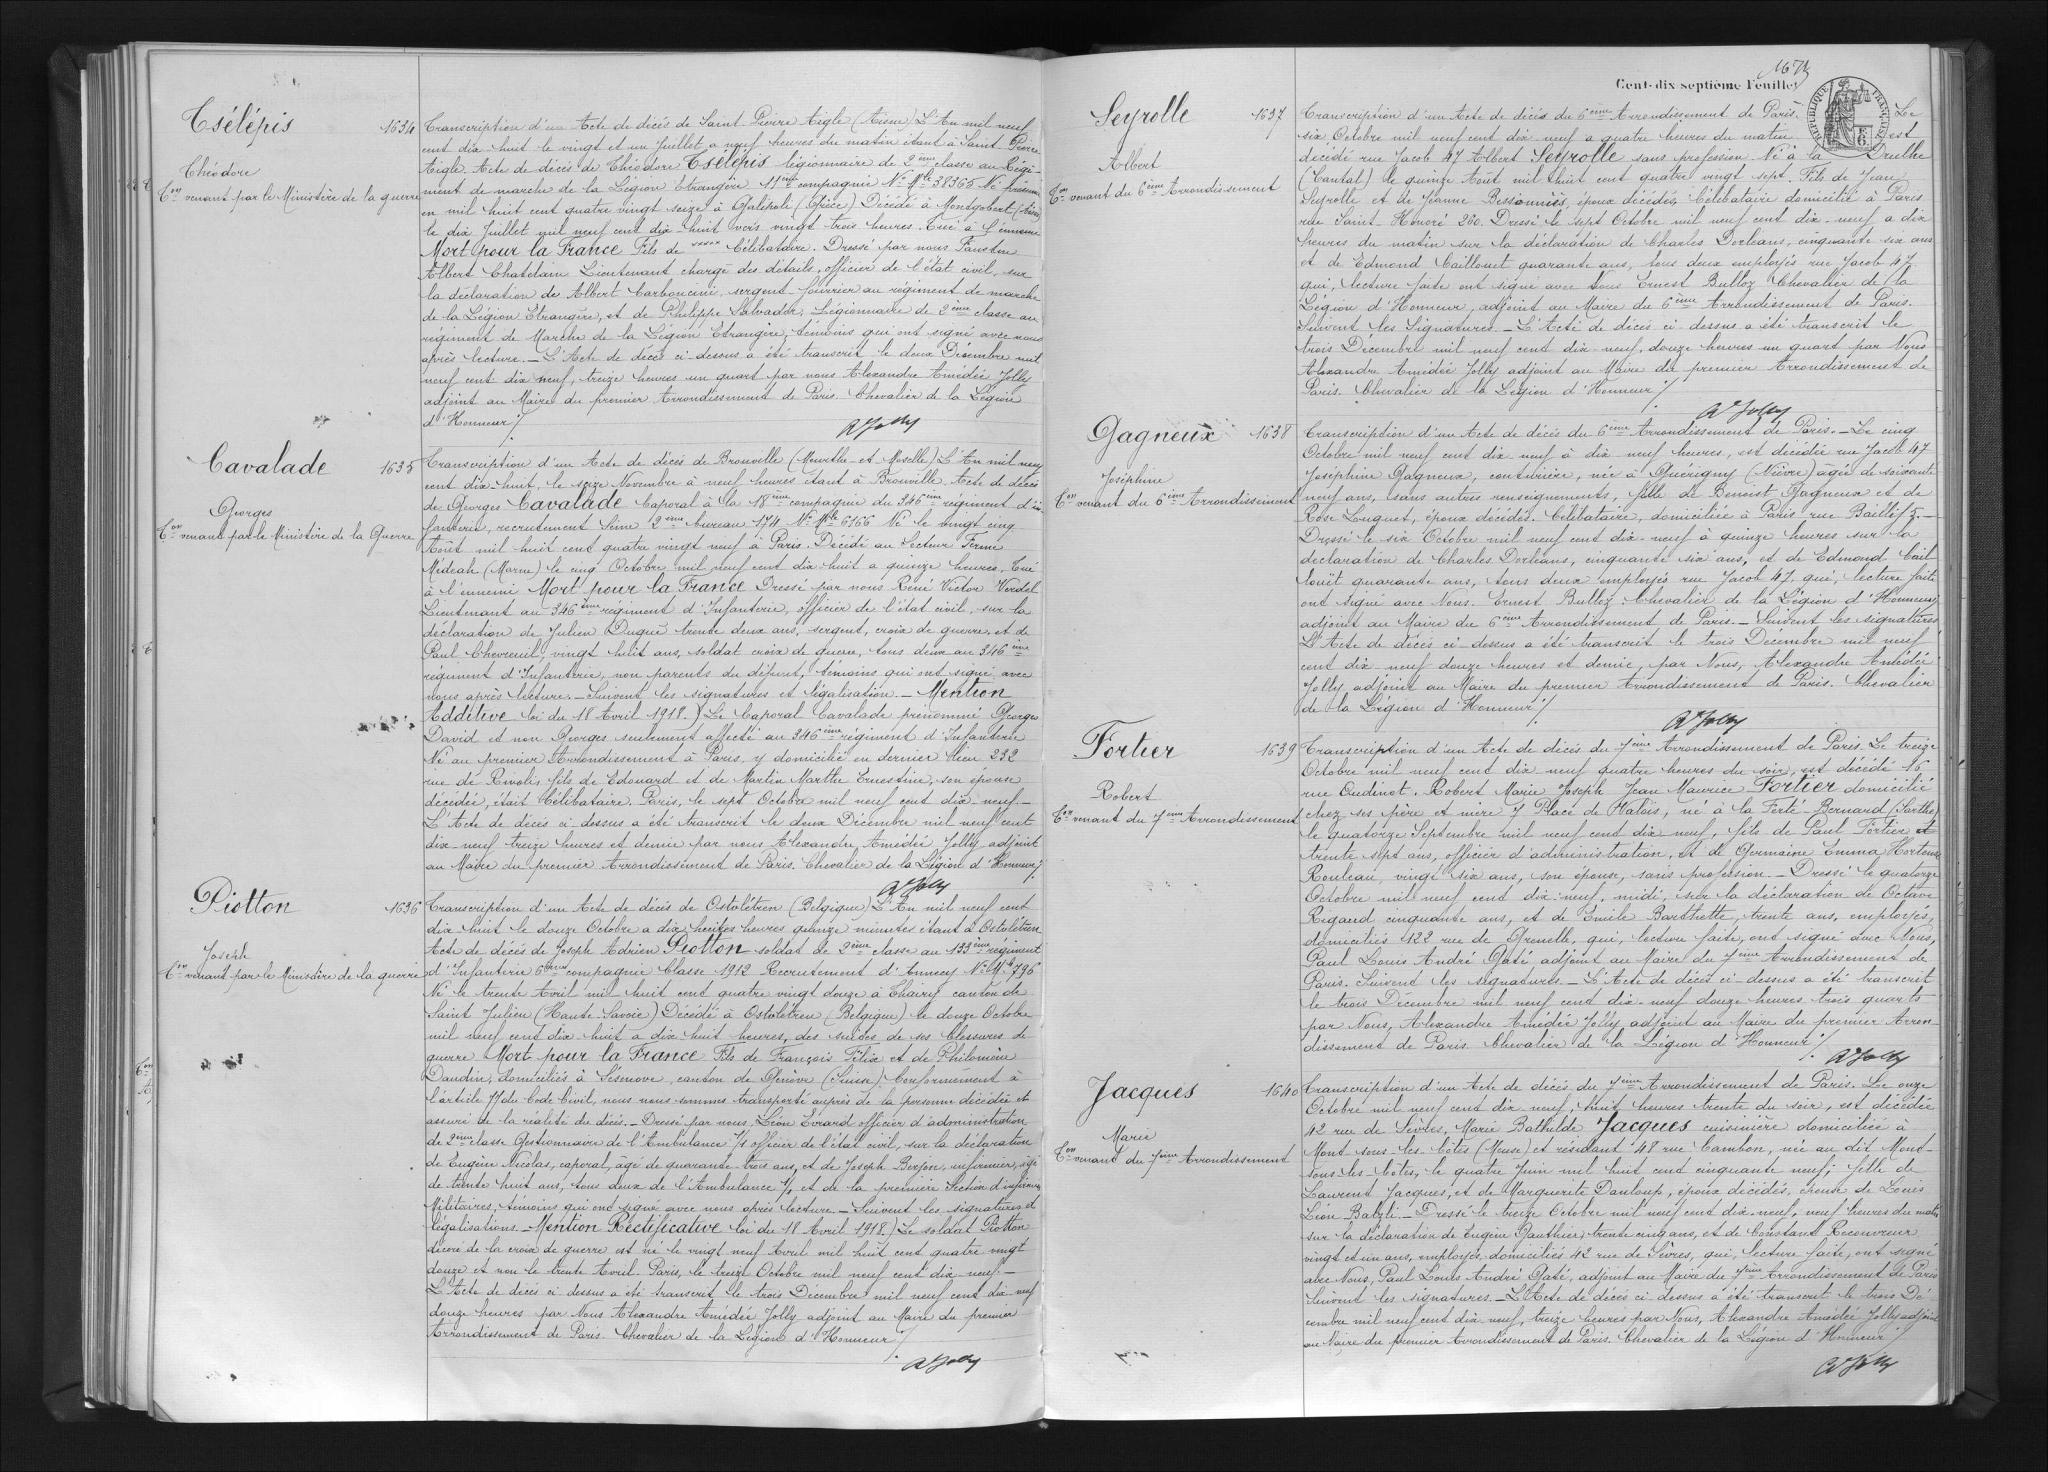 Tsélépis
1634
Théodore
Con venant par le Ministère de la guerre
Transcription d'un Acte de décès de Saint Pierre Aigle (Aisne) L'An mil neuf
cent dix huit le vingt et un Juillet a neuf heures du matin étant à Saint Pierre
Aigle. Acte de décès de Théodore Tsélépis légionnaire de 2ème classe au Régi-
ment de marche de la Légion Etrangère 11ème compagnie No Mle 38365 Né présumé
en mil huit cent quatre vingt seize à Galipoli (Grèce) Décédé à Montgobert (Aisne)
le dix Juillet mil neuf cent dix-huit vers vingt trois heures. Tué à l'ennemi
Mort pour la France Fils de xxxx Célibataire. Dressé par nous Faustin
Albert Chatelain Lieutenant chargé des détails, officier de l'état civil, sur
la déclaration de Albert Carboncini, sergent-fourrier au régiment de marche
de la Légion Etrangère, et de Philippe Salvador, Légionnaire de 2ème classe au
régiment de Marche de la Légion Etrangère, témoins qui ont signé avec nous
après lecture. — L'Acte de décès ci-dessus a été transcrit le deux Décembre mil
neuf cent dix neuf, treize heures un quart par nous Alexandre Amédée Jolly
adjoint au Maire du premier Arrondissement de Paris. Chevalier de la Légion
d'Honneur /.
A Jolly
Cavalade
1635
Georges
Con venant par le Ministère de la Guerre
Transcription d'un Acte de décès de Brouville (Meurthe-et-Moselle) L'An mil neuf
cent dix-huit, le seize Novembre à neuf heures étant à Brouville. Acte de décès
de Georges Cavalade Caporal à la 18ème compagnie du 346ème régiment d'in
fanterie, recrutement Seine 2ème bureau 174 No Mle 6166 Né le vingt cinq
Août mil huit cent quatre vingt neuf à Paris. Décédé au Secteur Ferme
Médeah (Marne) le cinq Octobre mil neuf cent dix huit a quinze heures. Tué
à l'ennemi Mort pour la France Dressé par nous René Victor Verdet
Lieutenant au 346ème régiment d'Infanterie, officier de l'état civil, sur la
déclaration de Julien Dugué trente deux ans, sergent, croix de guerre, et de
Paul Chevreuil, vingt huit ans, soldat croix de guerre, tous deux au 346ème
régiment d'Infanterie, non parents du défunt, témoins qui ont signé avec
nous après lecture. — Suivent les signatures et légalisation. — Mention
Additive loi du 18 Avril 1918.) Le Caporal Cavalade prénommé Georges
David et non Georges seulement affecté au 346ème régiment d'Infanterie
Né au premier Arrondissement à Paris, y domicilié en dernier lieu 232
rue de Rivoli, fils de Edouard et de Martin Marthe Ernestine, son épouse
décédée, était Célibataire. Paris, le sept Octobre mil neuf cent dix-neuf. —
L'Acte de décès ci dessus a été transcrit le deux Décembre mil neuf cent
dix-neuf treize heures et demie par nous Alexandre Amédée Jolly adjoint
au Maire du premier Arrondissement de Paris. Chevalier de la Légion d'Honneur /.
A Jolly
Piotton
1636
Joseph
Con venant par le Ministère de la guerre
Transcription d'un Acte de décès de Ostvletren (Belgique) L'An mil neuf cent
dix huit le douze Octobre a dix huit heures quinze minutes étant à Ostvletren
Acte de décès de Joseph Adrien Piotton soldat de 2ème classe au 133ème régiment
d'Infanterie 6ème compagnie Classe 1912 Recrutement d'Annecy No Mle 796
Né le trente Avril mil huit cent quatre vingt douze à Thairy canton de
Saint Julien (Haute-Savoie) Décédé à Ostvletren (Belgique) le douze Octobre
mil neuf cent dix huit a dix huit heures, des suites de ses blessures de
guerre Mort pour la France Fils de François Félix et de Philomène
Daudin, domiciliés à Sésenove, canton de Genève (Suisse). Conformément à
l'article 77 du Code Civil, nous nous sommes transporté auprès de la personne décédée et
assuré de la réalité du décès. — Dressé par nous, Léon Evrard officier d'administration
de 2ème classe Gestionnaire de l'Ambulance 1/1 officier de l'état civil, sur la déclaration
de Eugène Nicolas, caporal, âgé de quarante-trois ans, et de Joseph Berjon, infirmier, âgé
de trente huit ans, tous deux de l'Ambulance 1/1 et de la première Section d'infirmiers
Militaires, témoins qui ont signé avec nous après lecture. — Suivent les signatures et
légalisations. — Mention Rectificative loi du 18 Avril 1918.) Le soldat Piotton
décoré de la croix de guerre est né le vingt neuf Avril mil huit cent quatre vingt
douze et non le trente Avril. Paris, le treize Octobre mil neuf cent dix-neuf. —
L'Acte de décès ci dessus a été transcrit le trois Décembre mil neuf cent dix-neuf
douze heures par Nous Alexandre Amédée Jolly adjoint au Maire du premier
Arrondissement de Paris. Chevalier de la Légion d'Honneur /.
A Jolly
Cent-dix septième Feuillet
RÉPUBLIQUE FRANÇAISE
Seyrolle
1637
Albert
Con venant du 6ème Arrondissement
Transcription d'un Acte de décès du 6ème Arrondissement de Paris. — Le
six Octobre mil neuf cent dix neuf a quatre heures du matin est
décédé rue Jacob 47 Albert Seyrolle sans profession. Né à la Trulhe
(Cantal) le quinze Août mil huit cent quatre vingt sept. Fils de Jean
Seyrolle et de Jeanne Bessonnies, époux décédés, Célibataire domicilié à Paris
rue Saint-Honoré 260. Dressé le sept Octobre mil neuf cent dix-neuf a dix
heures du matin sur la déclaration de Charles Dorléans, cinquante six ans
et de Edmond Caillouet quarante ans, tous deux employés rue Jacob 47
qui, lecture faite ont signé avec Nous Ernest Bulloz Chevalier de la
Légion d'Honneur, adjoint au Maire du 6ème Arrondissement de Paris.
Suivent les Signatures. — L'Acte de décès ci-dessus a été transcrit le
trois Décembre mil neuf cent dix-neuf, douze heures un quart par Nous
Alexandre Amédée Jolly adjoint au Maire du premier Arrondissement de
Paris. Chevalier de la Légion d'Honneur /.
A Jolly
Gagneux
1638
Joséphine
Con venant du 6ème Arrondissement
Transcription d'un Acte de décès du 6ème Arrondissement de Paris. — Le cinq
Octobre mil neuf cent dix neuf à dix neuf heures, est décédée rue Jacob 47
Joséphine Gagneux, couturière, née à Guérigny (Nièvre) âgée de soixante
neuf ans, sans autres renseignements, fille de Benoist Gagneux et de
Rose Luquet, époux décédés. Célibataire, domiciliée à Paris rue Baillif 5. —
Dressé le six Octobre mil neuf cent dix-neuf à quinze heures sur la
déclaration de Charles Dorléans, cinquante six ans, et de Edmond Cail
louët quarante ans, tous deux employés rue Jacob 47, qui, lecture faite
ont signé avec Nous. Ernest Bulloz. Chevalier de la Légion d'Honneur,
adjoint au Maire du 6ème Arrondissement de Paris. — Suivent les signatures
L'Acte de décès ci-dessus a été transcrit le trois Décembre mil neuf
cent dix-neuf douze heures et demie, par Nous, Alexandre Amédée
Jolly adjoint au Maire du premier Arrondissement de Paris. Chevalier
de la Légion d'Honneur /.
A Jolly
Fortier
1639
Robert
Con venant du 7ème Arrondissement
Transcription d'un Acte de décès du 7ème Arrondissement de Paris. Le treize
Octobre mil neuf cent dix neuf quatre heures du soir, est décédé 16
rue Oudinot. Robert Marie Joseph Jean Maurice Fortier domicilié
chez ses père et mère 7 Place de Valois, né à la Ferté-Bernard (Sarthe)
le quatorze Septembre mil neuf cent dix neuf, fils de Paul Fortier
trente sept ans, officier d'administration, et de Germaine Emma Hortense
Rouleau, vingt six ans, son épouse, sans profession. — Dressé le quatorze
Octobre mil neuf cent dix-neuf, midi, sur la déclaration de Octave
Rigaud cinquante ans, et de Emile Barthette, trente ans, employés,
domiciliés 122 rue de Grenelle, qui, lecture faite, ont signé avec Nous,
Paul Louis André Gaté adjoint au Maire du 7ème Arrondissement de
Paris. Suivent les signatures. — L'Acte de décès ci-dessus a été transcrit
le trois Décembre mil neuf cent dix-neuf douze heures trois quarts
par Nous, Alexandre Amédée Jolly adjoint au Maire du premier Arron-
dissement de Paris. Chevalier de la Légion d'Honneur /.
A Jolly
Jacques
1640
Marie
Con venant du 7ème Arrondissement
Transcription d'un Acte de décès du 7ème Arrondissement de Paris. Le onze
Octobre mil neuf cent dix neuf, huit heures trente du soir, est décédée
42 rue de Sèvres, Marie Bathilde Jacques cuisinière domiciliée à
Mont-sous-les-Côtes (Meuse) et résidant 48 rue Cambon, née au dit Mont-
sous-les-Côtes, le quatre Juin mil huit cent cinquante neuf, fille de
Laurent Jacques, et de Marguerite Danloup, époux décédés, épouse de Louis
Léon Babzli. — Dressé le treize Octobre mil neuf cent dix-neuf, neuf heures du matin
sur la déclaration de Eugène Gauthier, trente cinq ans, et de Constant Recouvreur
vingt et un ans, employés, domiciliés 42 rue de Sèvres, qui, lecture faite, ont signé
avec Nous, Paul Louis André Gaté, adjoint au Maire du 7ème Arrondissement de Paris
Suivent les signatures. — L'Acte de décès ci-dessus a été transcrit le trois Dé
cembre mil neuf cent dix neuf, treize heures par Nous, Alexandre Amédée Jolly adjoint
au Maire du premier Arrondissement de Paris. Chevalier de la Légion d'Honneur /.
A Jolly